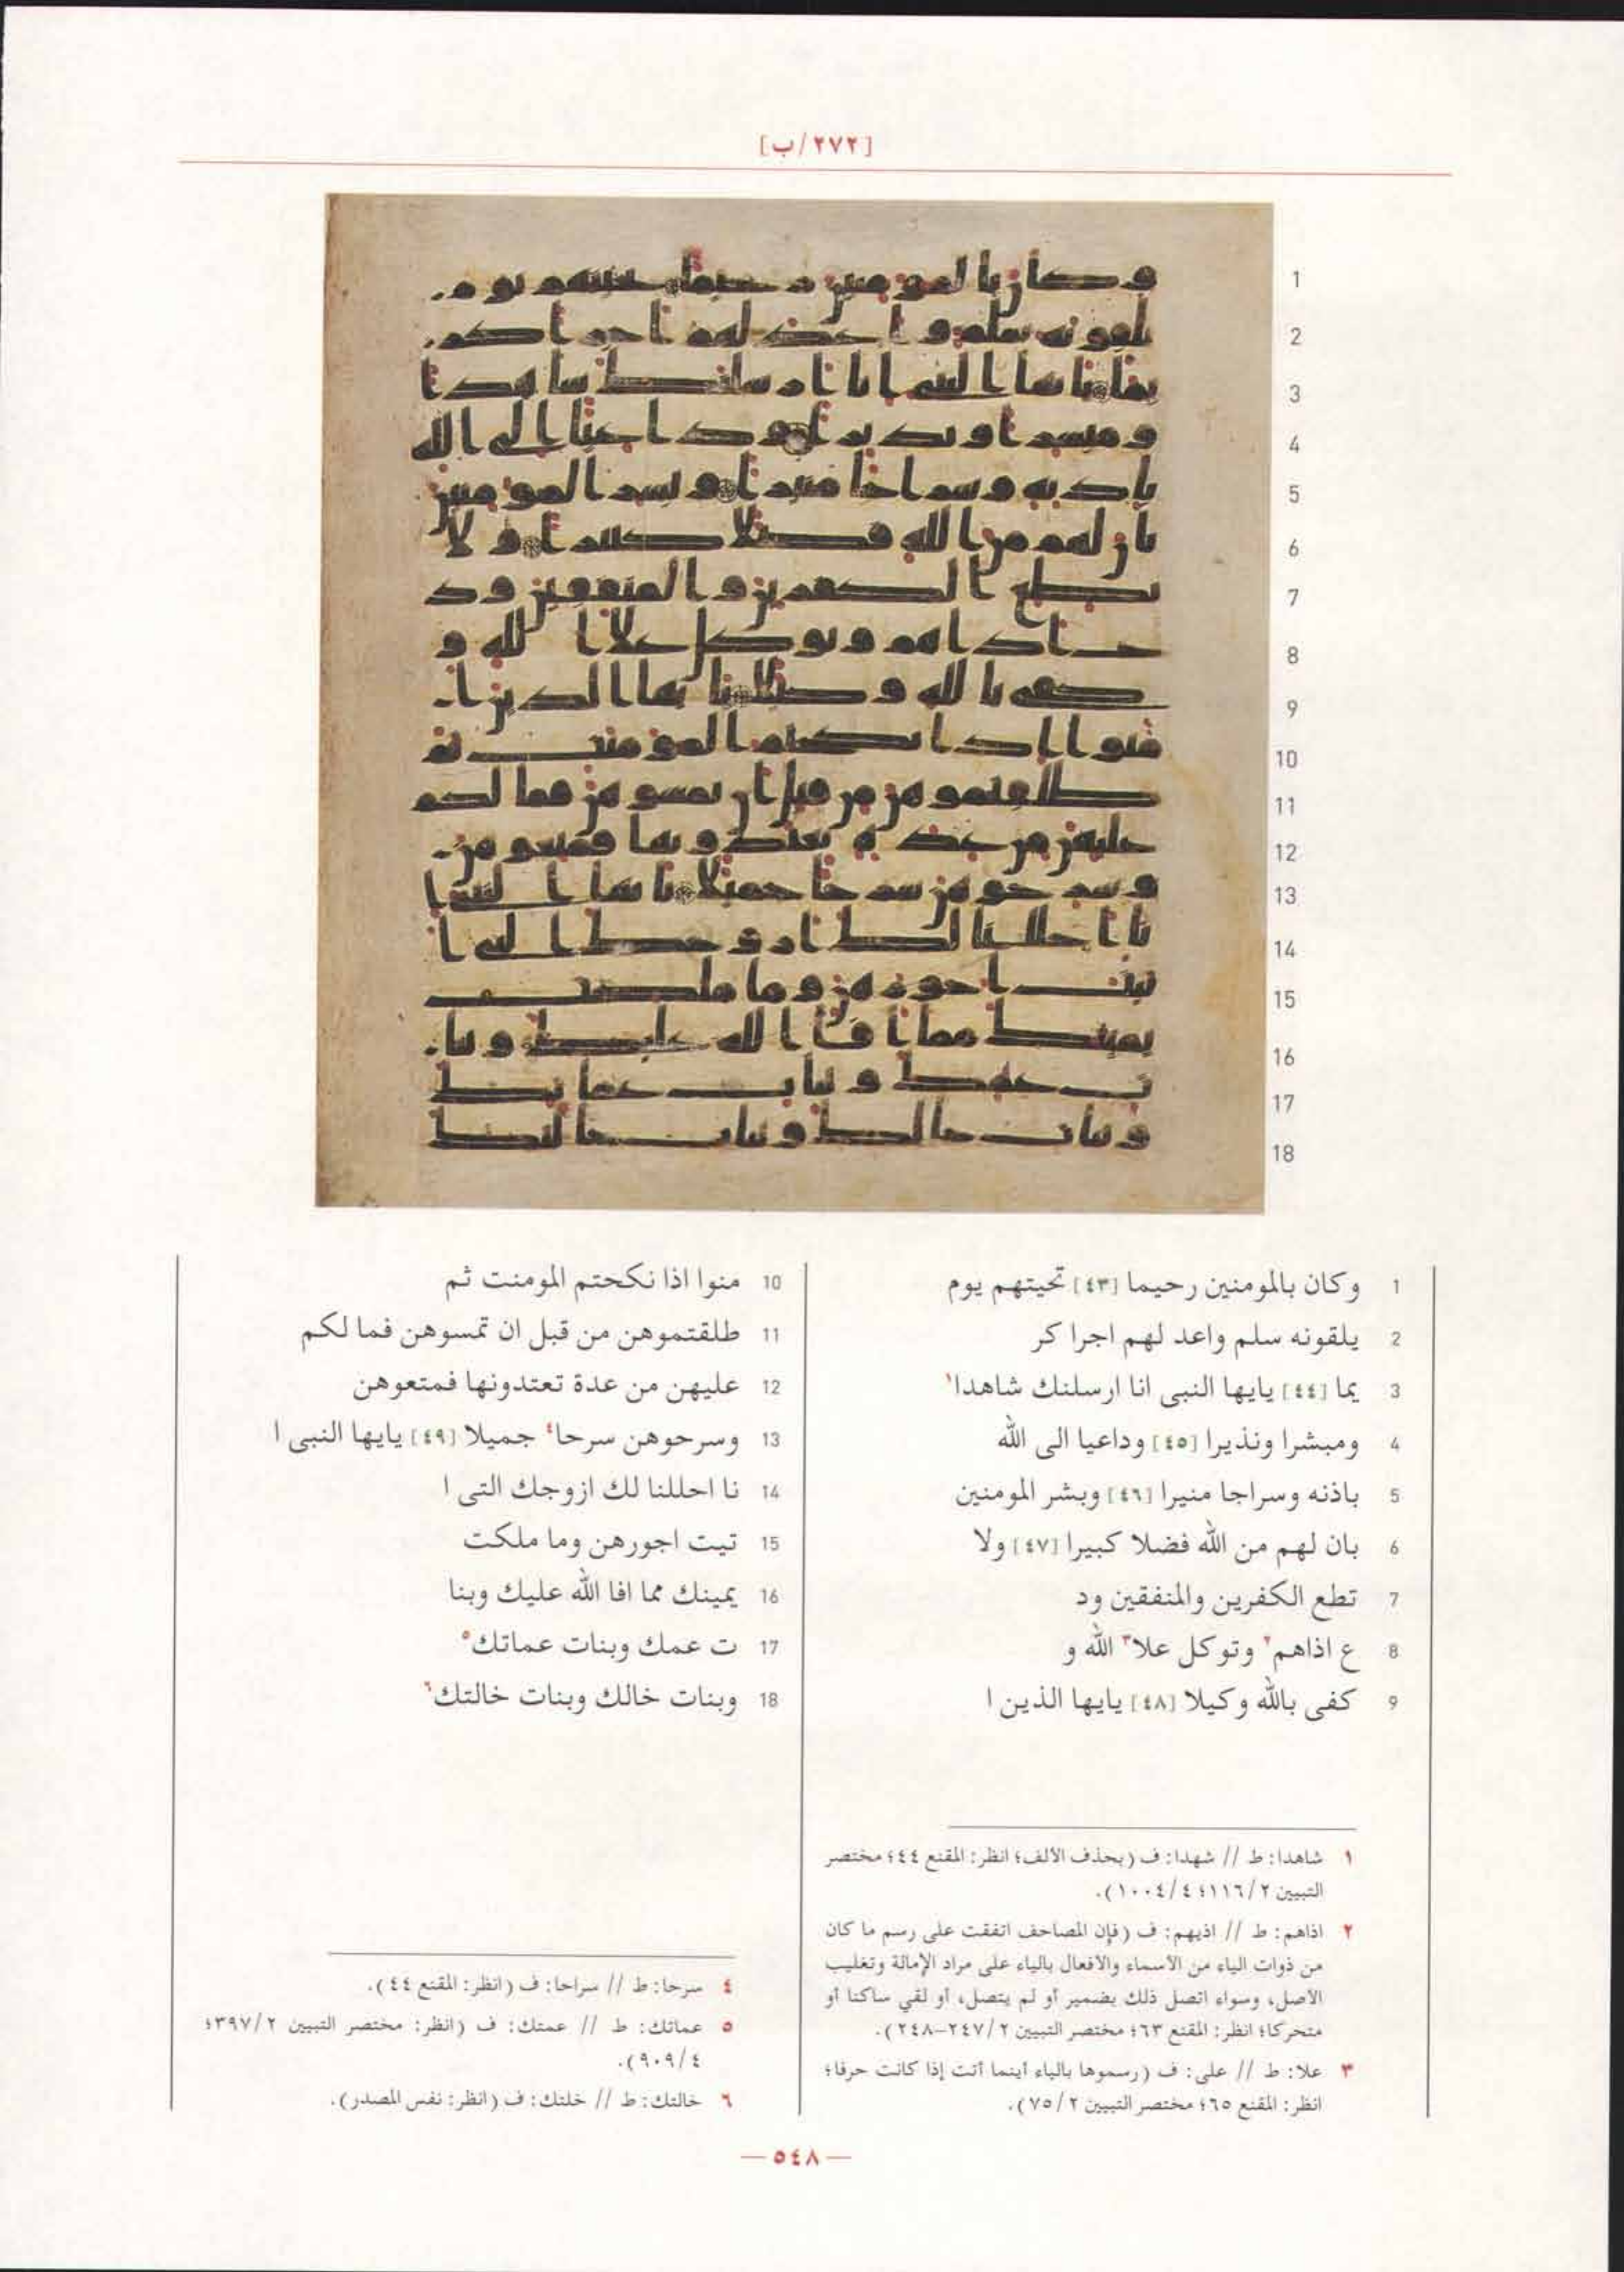 [٢٧٢/ب]
1 وكان بالمومنين رحيما [٤٣] تحيتهم يوم
2 يلقونه سلم واعد لهم اجرا كر
3 يما [٤٤] يايها النبى انا ارسلنك شاهدا١
4 ومبشرا ونذيرا [٤٥] وداعيا الى الله
5 باذنه وسراجا منيرا [٤٦] وبشر المومنين
6 بان لهم من الله فضلا كبيرا [٤٧] ولا
7 تطع الكفرين والمنفقين ود
8 ع اذاهم٢ وتوكل علا٣ الله و
9 كفى بالله وكيلا [٤٨] يايها الذين ا
10 منوا اذا نكحتم المومنت ثم
11 طلقتموهن من قبل ان تمسوهن فما لكم
12 عليهن من عدة تعتدونها فمتعوهن
13 وسرحوهن سرحا٤ جميلا [٤٩] يايها النبى ا
14 نا احللنا لك ازوجك التى ا
15 تيت اجورهن وما ملكت
16 يمينك مما افا الله عليك وبنا
17 ت عمك وبنات عماتك٥
18 وبنات خالك وبنات خالتك٦
١ شاهدا: ط // شهدا: ف (بحذف الألف؛ انظر: المقنع ٤٤؛ مختصر
التبيين ١١٦/٢؛ ١٠٠٤/٤).
٢ اذاهم: ط // اذيهم: ف (فإن المصاحف اتفقت على رسم ما كان
من ذوات الياء من الأسماء والأفعال بالياء على مراد الإمالة وتغليب
الأصل، وسواء اتصل ذلك بضمير أو لم يتصل، أو لقي ساكنا أو
متحركا؛ انظر: المقنع ٦٣؛ مختصر التبيين ٢٤٧/٢-٢٤٨).
٣ علا: ط // على: ف (رسموها بالياء أينما أتت إذا كانت حرفا؛
انظر: المقنع ٦٥؛ مختصر التبيين ٧٥/٢).
٤ سرحا: ط // سراحا: ف (انظر: المقنع ٤٤).
٥ عماتك: ط // عمتك: ف (انظر: مختصر التبيين ٣٩٧/٢؛
٩٠٩/٤).
٦ خالتك: ط // خلتك: ف (انظر: نفس المصدر).
— ٥٤٨ —